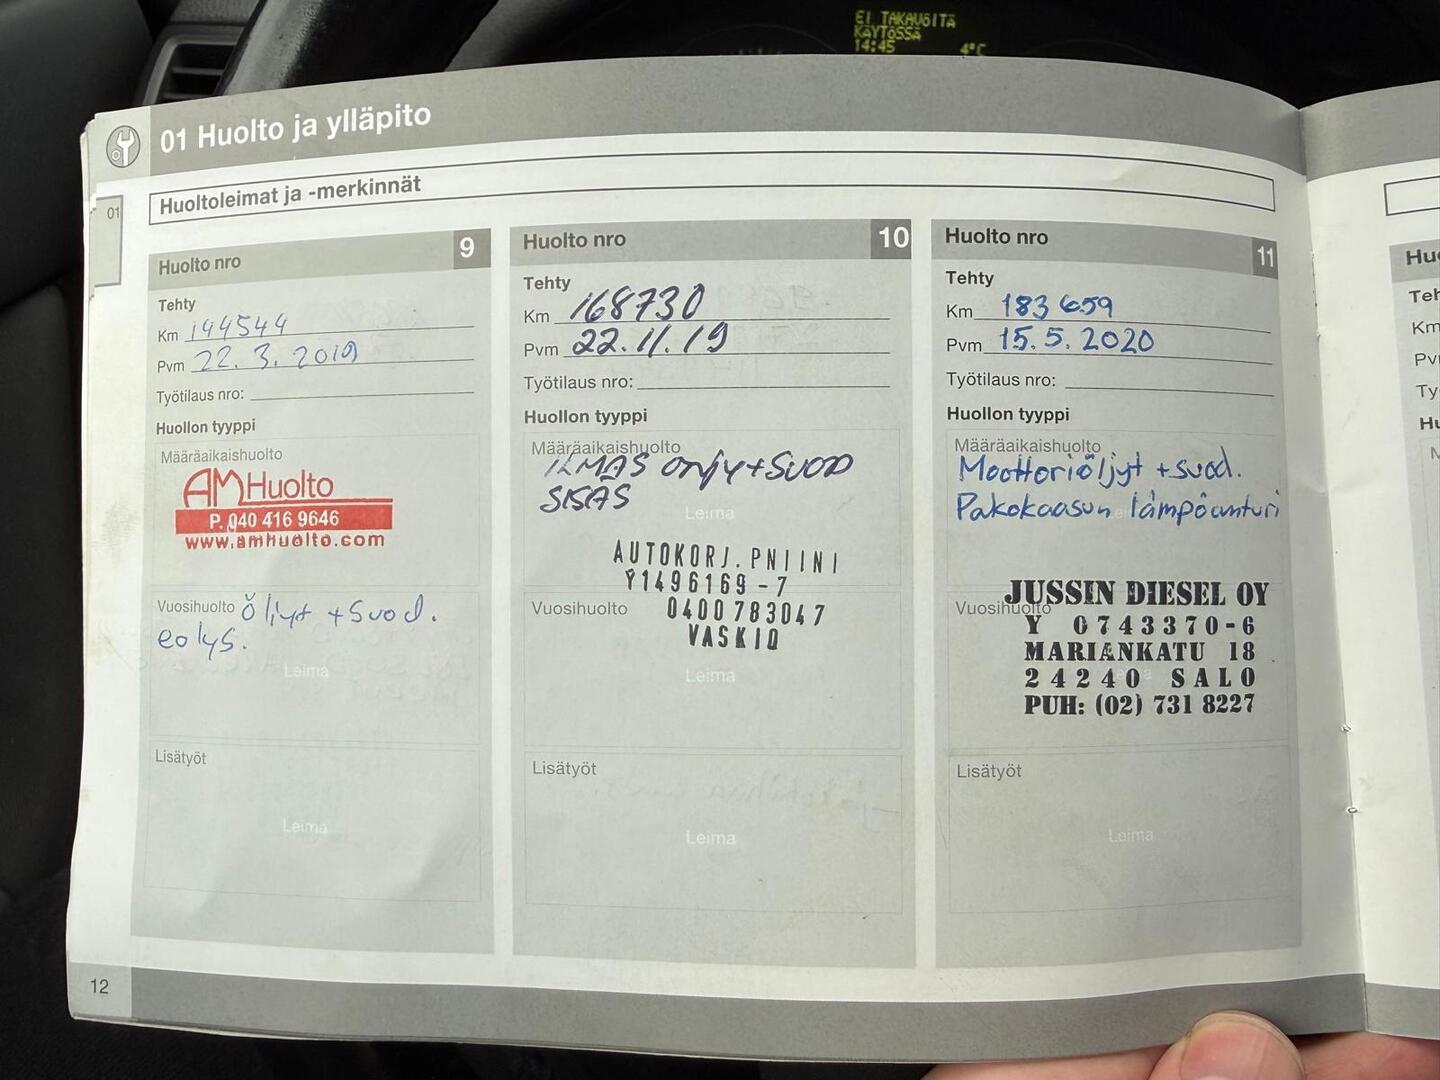 EI TAKAUSITA
KÄYTÖSSÄ
14:45 4°C
01 Huolto ja ylläpito
Huoltoleimat ja -merkinnät
01
Huolto nro 9
Tehty
Km 144544
Pvm 22.3.2019
Työtilaus nro:
Huollon tyyppi
Määräaikaishuolto
AM Huolto
P. 040 416 9646
www.amhuolto.com
Vuosihuolto Öljyt + Suod.
eolys.
Leima
Lisätyöt
Leima
Huolto nro 10
Tehty
Km 168730
Pvm 22.11.19
Työtilaus nro:
Huollon tyyppi
Määräaikaishuolto
ILMAS ÖLJY+SUOD
SISÄS
Leima
AUTOKORJ. PNIINI
Y1496169-7
Vuosihuolto 0400783047
VASKIO
Leima
Lisätyöt
Leima
Huolto nro 11
Tehty
Km 183 659
Pvm 15.5.2020
Työtilaus nro:
Huollon tyyppi
Määräaikaishuolto
Moottoriöljyt + suod.
Pakokaasun lämpöanturi
JUSSIN DIESEL OY
Vuosihuolto
Y 0743370-6
MARIANKATU 18
24240 SALO
PUH: (02) 731 8227
Lisätyöt
Leima
12